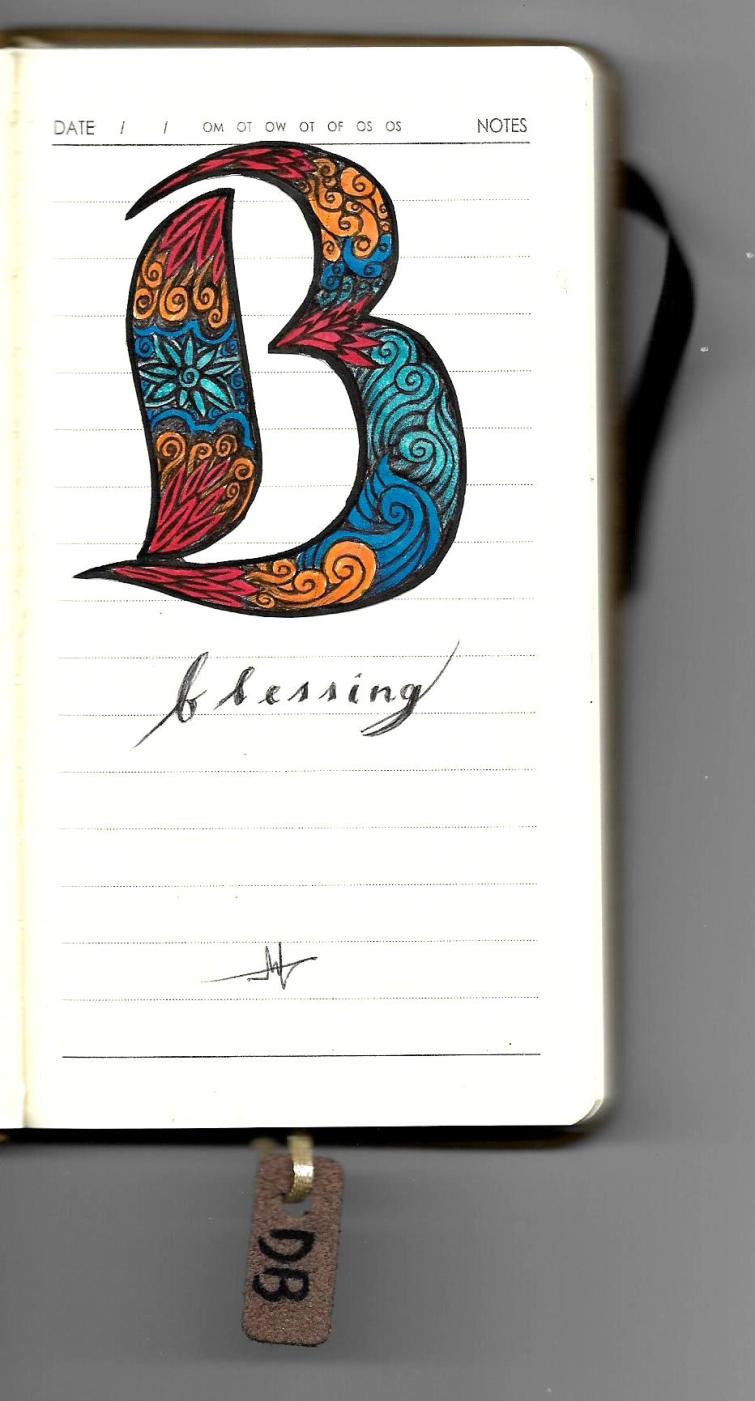 DATE / / OM OT OW OT OF OS OS NOTES
B
blessing
DB